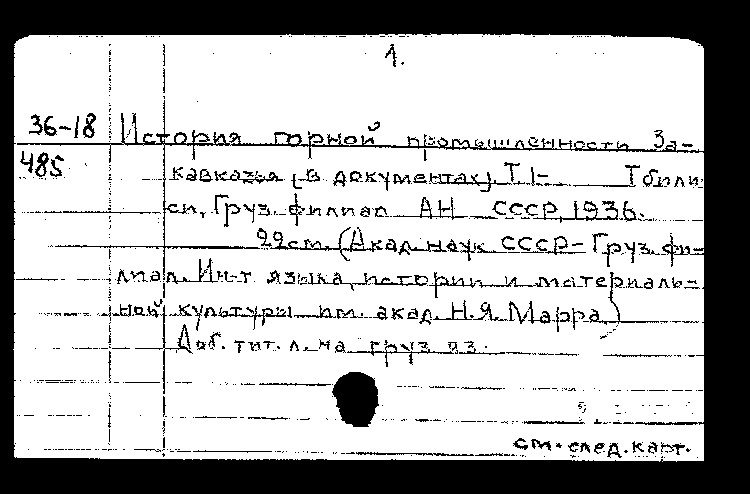 1.
36-18 История горной промышленности За-
485 кавказья [в документах]. Т. 1- Тбили
си, Груз. филиал АН СССР, 1936.
22см. (Акад. наук СССР - Груз. фи-
лиал. Ин-т языка, истории и материаль-
ной культуры им. акад. Н.Я. Марра)
Доб. тит. л. на груз. яз.
см. след. карт.